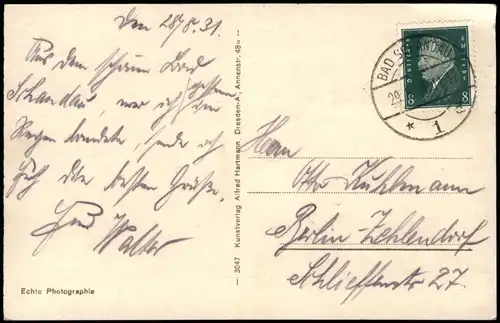 Den 28/8.31.
Aus dem schönen Bad
Schandau, wo ich gestern im
Regen landete, sende ich
Euch die besten Grüße.
Euer
Walter
Echte Photographie
3047 Kunstverlag Alfred Hartmann, Dresden-A, Annenstr. 48
BAD SCHANDAU
8 8
* 1
Herrn
Otto Kuhlmann
Berlin-Zehlendorf
Schlieffenstr 27.